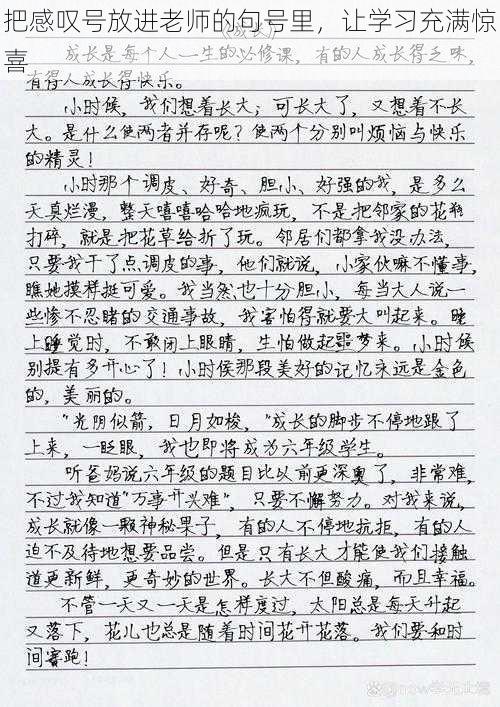 把感叹号放进老师的句号里，让学习充满惊喜
《成长》
成长是每个人一生的必修课，有的人成长得乏味，
有得人成长得快乐。
小时候，我们想着长大；可长大了，又想着不长
大。是什么使两者并存呢？使两个分别叫烦恼与快乐
的精灵！
小时那个调皮、好奇、胆小、好强的我，是多么
天真烂漫，整天嘻嘻哈哈地疯玩，不是把邻家的花瓶
打碎，就是把花草给折了玩。邻居们都拿我没办法，
只要我干了点调皮的事，他们就说，小家伙嘛不懂事，
瞧她摸样挺可爱。我当然也十分胆小，每当大人说一
些惨不忍睹的交通事故，我害怕得就要大叫起来。晚
上睡觉时，不敢闭上眼睛，生怕做起噩梦来。小时候
别提有多开心了！小时侯那段美好的记忆永远是金色
的，美丽的。
"光阴似箭，日月如梭，"成长的脚步不停地跟了
上来，一眨眼，我也即将成为六年级学生。
听爸妈说六年级的题目比以前更深奥了，非常难，
不过我知道"万事开兴难"，只要不懈努力。对我来说，
成长就像一颗神秘果子，有的人不停地抗拒，有的人
迫不及待地想要品尝。但是只有长大才能使我们接触
道更新鲜，更奇妙的世界。长大不但酸痛，而且幸福。
不管一天又一天是怎样度过，太阳总是每天升起
又落下，花儿也总是随着时间花开花落。我们要和时
间赛跑！